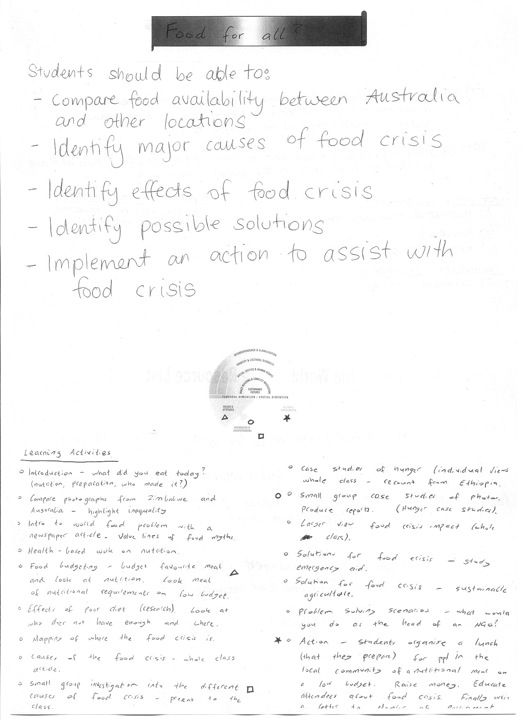 Food for all?
Students should be able to:
- Compare food availability between Australia
and other locations
- Identify major causes of food crisis
- Identify effects of food crisis
- Identify possible solutions
- Implement an action to assist with
food crisis
Learning Activities
o Introduction - what did you eat today?
(nutrition, preparation, who made it?)
o Compare photographs from Zimbabwe and
Australia - highlight inequality
o Intro to world food problem with a
newspaper article. Value lines of food myths.
o Health-based work on nutrition.
o Food budgeting - budget favourite meal
and look at nutrition. Look meal
of nutritional requirements on low budget.
o Effects of poor diet (research) Look at
who does not have enough and where.
o Mapping of where the food crisis is.
o Causes of the food crisis - whole class
o Small group investigation into the different
causes of food crisis - present to the
class.
o Case studies of hunger (individual views
whole class - recount from Ethiopia.
o Small group case studies of photos.
Produce reports. (Hunger case studies).
o Larger view food crisis impact (whole
class).
o Solutions for food crisis - study
emergency aid.
o Solution for food crisis - sustainable
agriculture.
o Problem solving scenarios - what would
you do as the head of an NGO?
o Action - Students organise a lunch
(that they prepare) for ppl in the
local community of a nutritional meal on
a low budget. Raise money. Educate
attendees about food crisis. Finally write
a letter to Member of